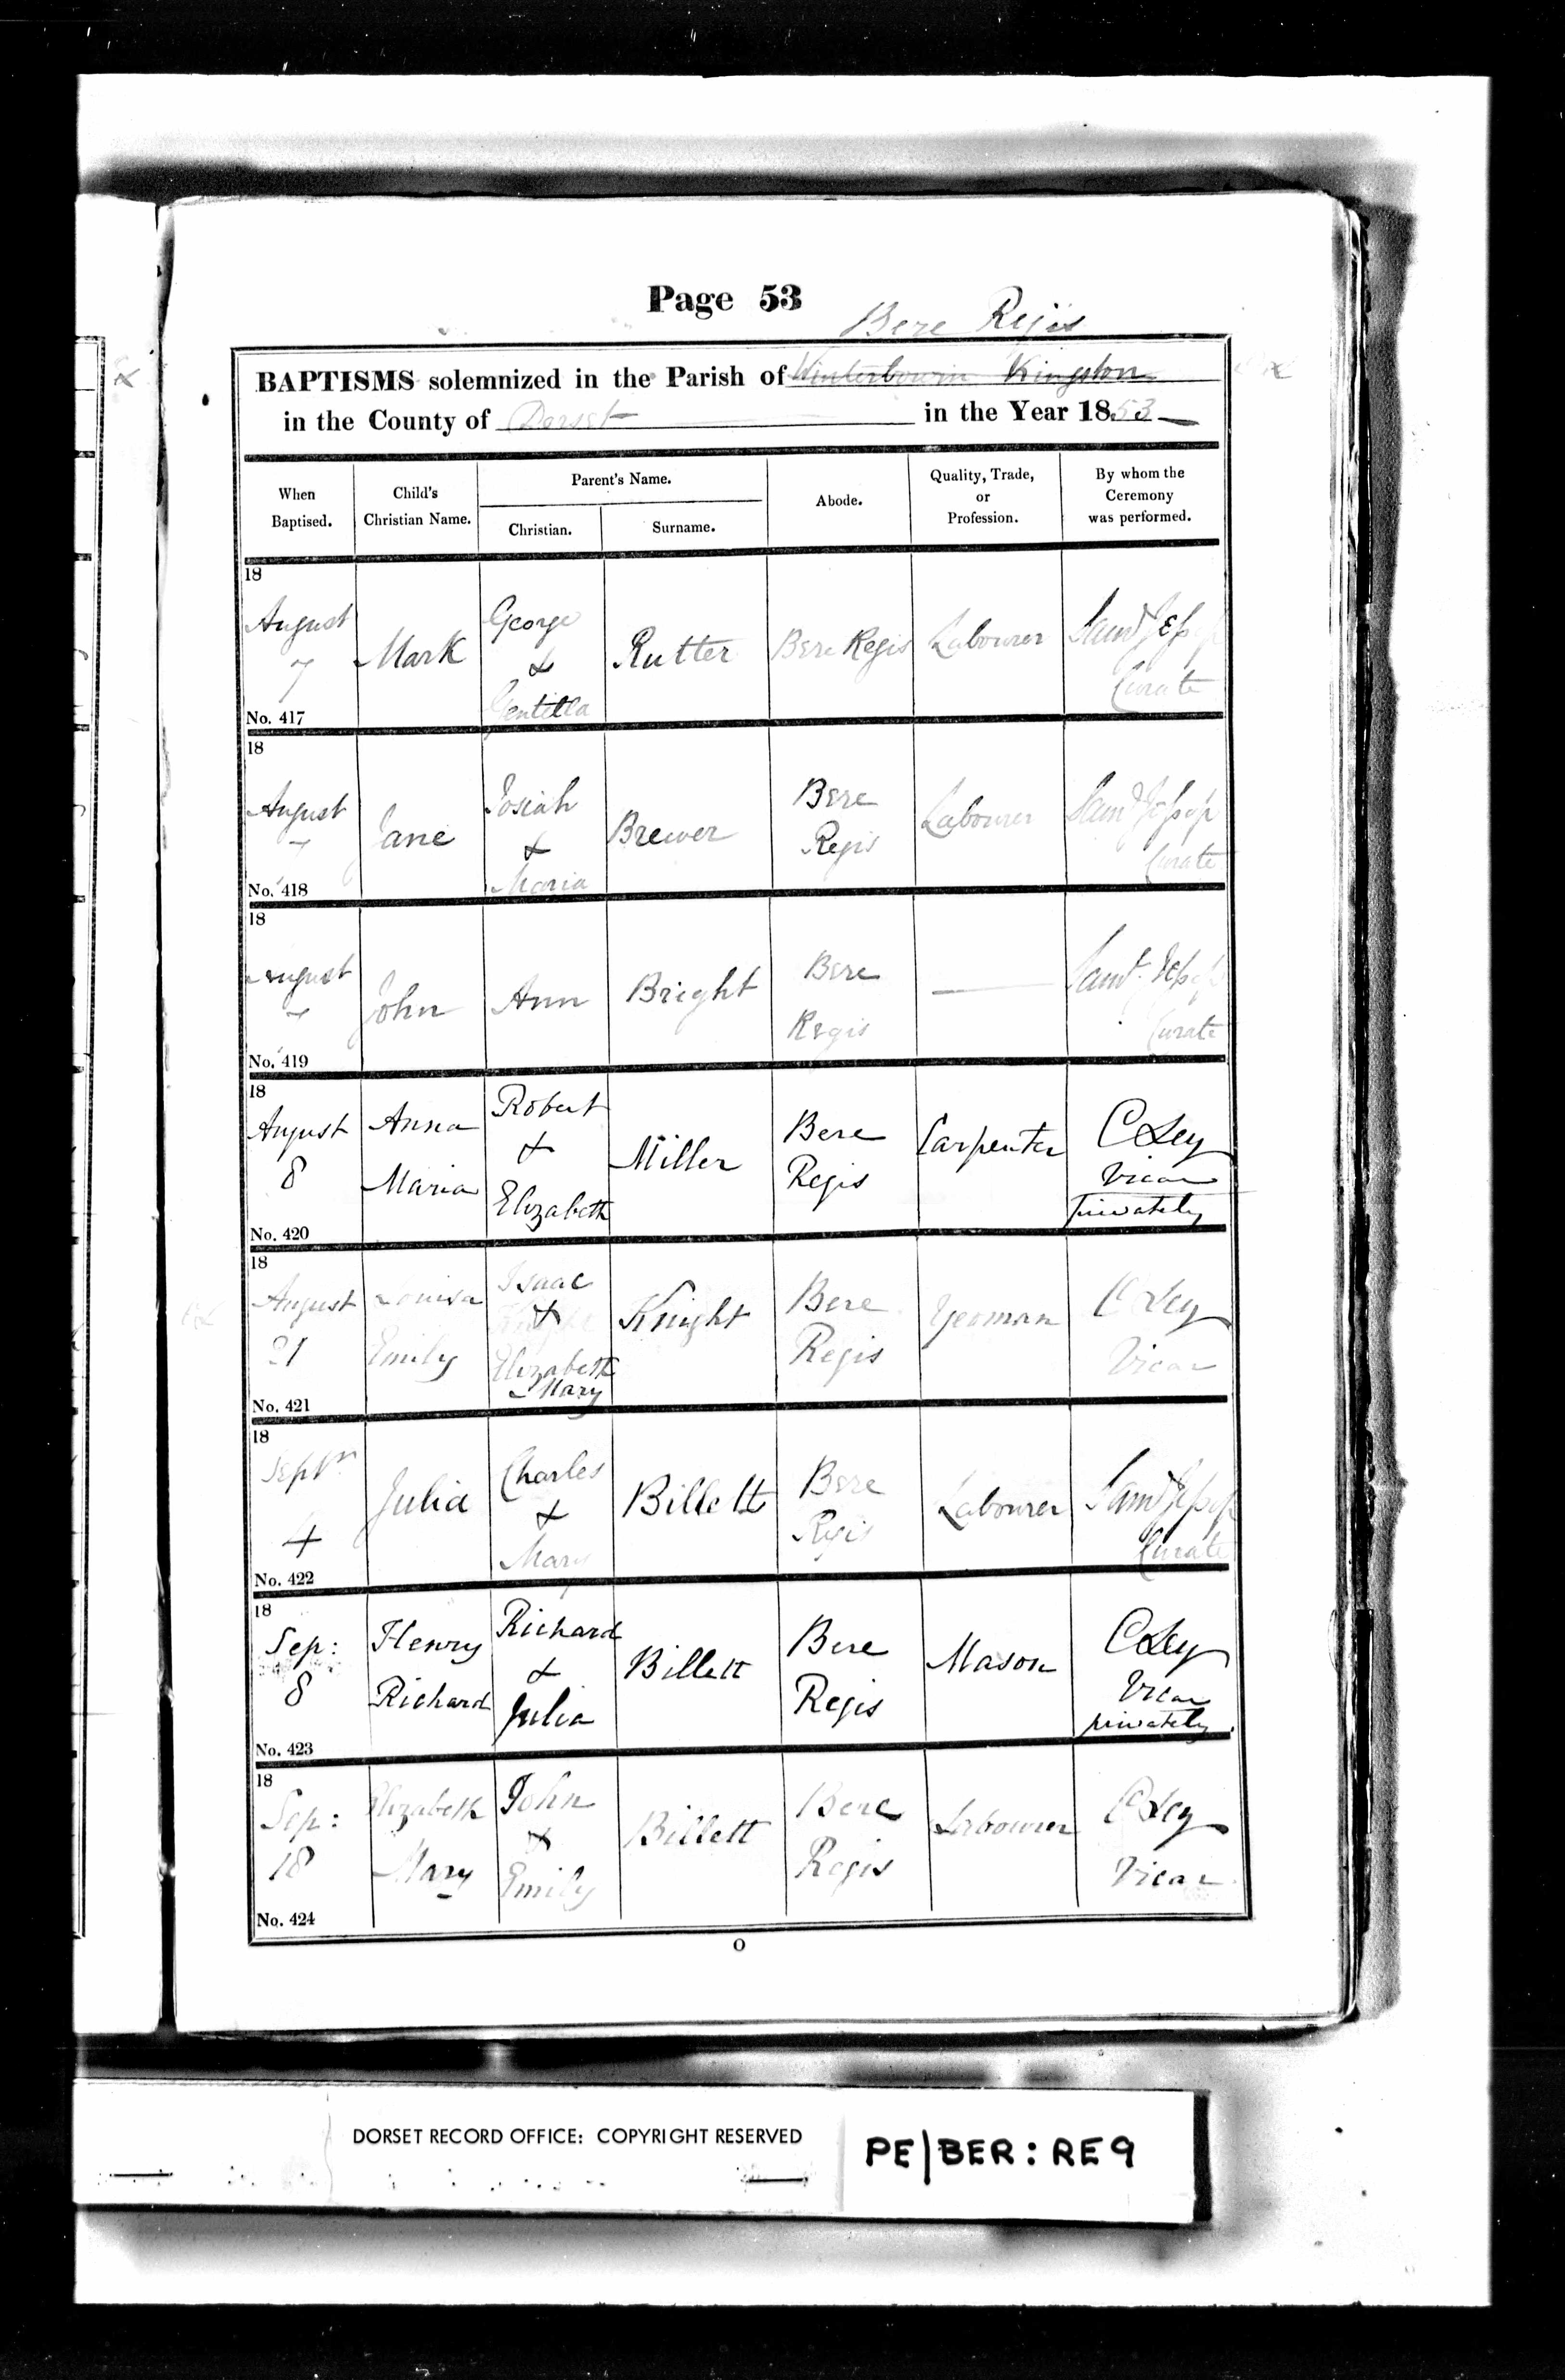 Page 53
Bere Regis
BAPTISMS solemnized in the Parish of Winterbourn Kingston
in the County of Dorset in the Year 1853
When Baptised.
Child's Christian Name.
Parent's Name.
Christian.
Surname.
Abode.
Quality, Trade, or Profession.
By whom the Ceremony was performed.
18
August 7
No. 417
Mark
George & Gentilla
Rutter
Bere Regis
Labourer
Saml Jessop Curate
18
August 7
No. 418
Jane
Josiah & Maria
Brewer
Bere Regis
Labourer
Saml Jessop Curate
18
August 7
No. 419
John
Ann
Bright
Bere Regis
Saml. Jessop Curate
18
August 8
No. 420
Anna Maria
Robert & Elizabeth
Miller
Bere Regis
Carpenter
C Ley Vicar Privately
18
August 21
No. 421
Louisa Emily
Isaac & Elizabeth Mary
Knight
Bere Regis
Yeoman
C Ley Vicar
18
Septr 4
No. 422
Julia
Charles & Mary
Billett
Bere Regis
Labourer
Saml Jessop Curate
18
Sep: 8
No. 423
Henry Richard
Richard & Julia
Billett
Bere Regis
Mason
C Ley Vicar privately
18
Sep: 18
No. 424
Elizabeth Mary
John & Emily
Billett
Bere Regis
Labourer
C Ley Vicar
O
DORSET RECORD OFFICE: COPYRIGHT RESERVED
PE/BER: RE9